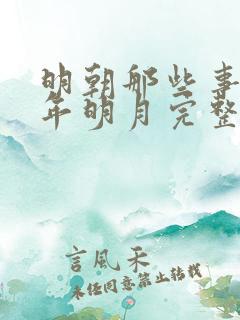 明朝那些事
年明月完整
言風禾
未经同意禁止转载